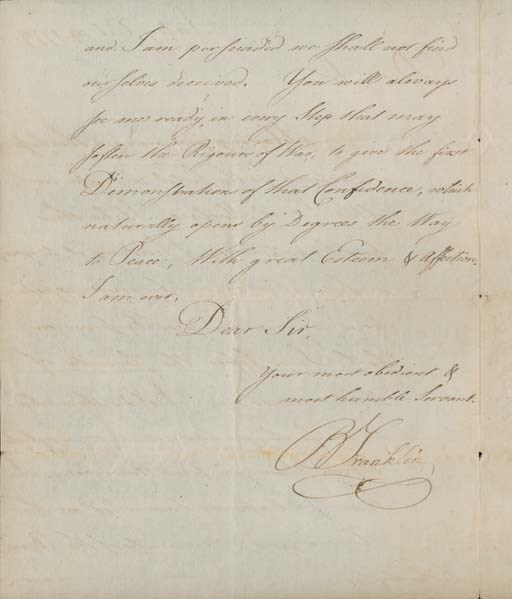 and I am perswaded we shall not find
ourselves deceived. You will always
see me ready, in every Step that may
soften the Rigours of War, to give the first
Demonstrations of that Confidence, which
naturally opens by Degrees the Way
to Peace. With great Esteem & Affection,
I am ever,
Dear Sir,
Your most obedient &
most humble Servant.
B Franklin,